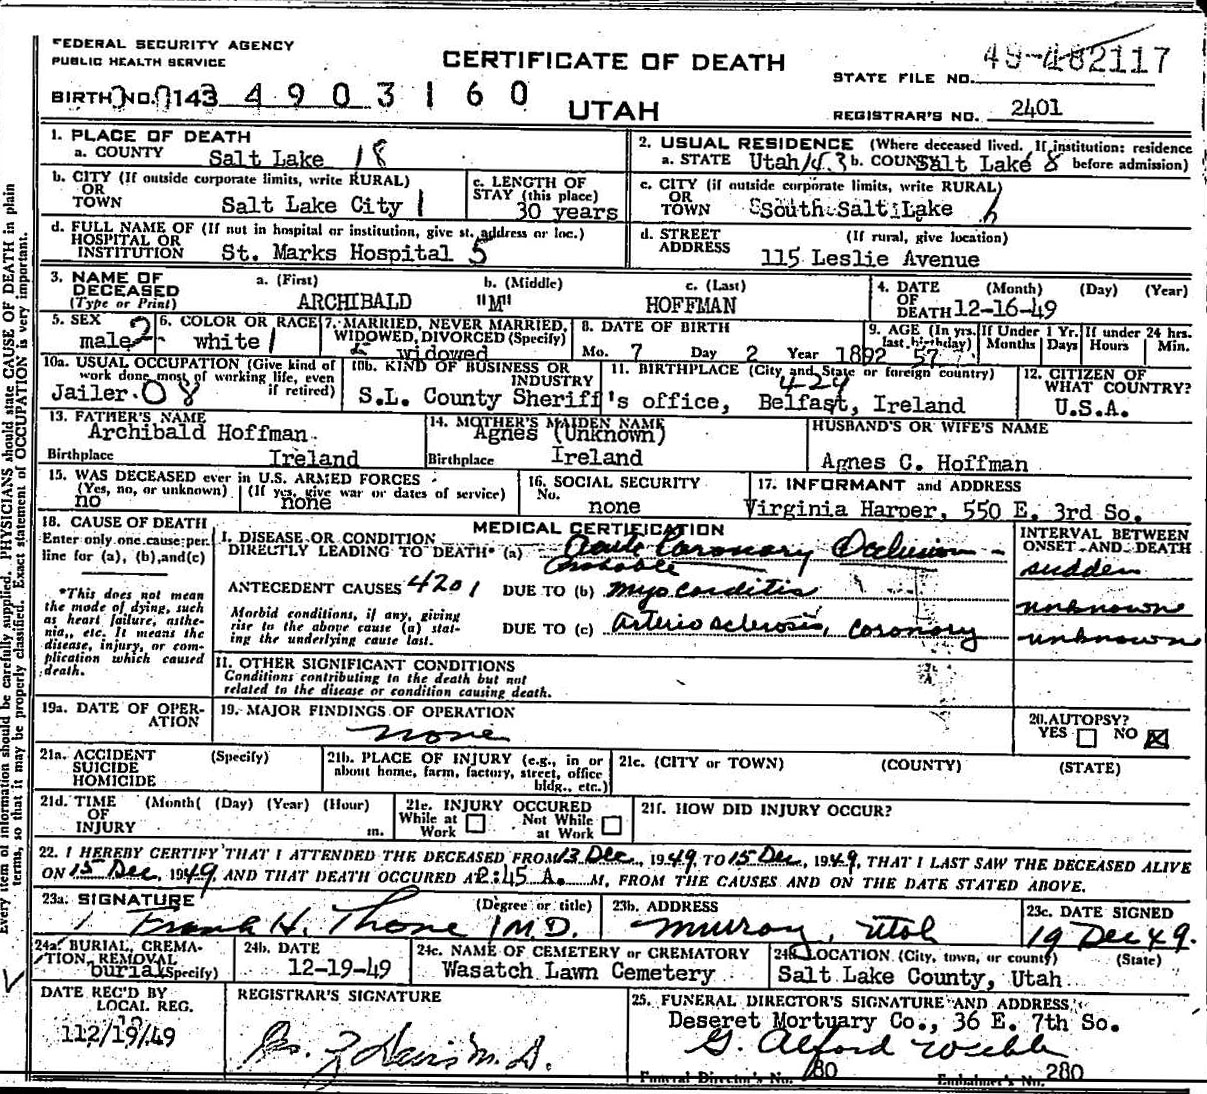 FEDERAL SECURITY AGENCY
PUBLIC HEALTH SERVICE
CERTIFICATE OF DEATH
UTAH
STATE FILE NO. 49-482117
REGISTRAR'S NO. 2401
BIRTH NO. 143 4903160
1. PLACE OF DEATH
a. COUNTY Salt Lake 18
b. CITY (If outside corporate limits, write RURAL)
OR
TOWN Salt Lake City 1
c. LENGTH OF
STAY (this place)
30 years
d. FULL NAME OF (If not in hospital or institution, give st. address or loc.)
HOSPITAL OR
INSTITUTION St. Marks Hospital 5
2. USUAL RESIDENCE (Where deceased lived. If institution: residence
a. STATE Utah 43 b. COUNTY Salt Lake 8 before admission)
c. CITY (if outside corporate limits, write RURAL)
OR
TOWN South Salt Lake
d. STREET (If rural, give location)
ADDRESS 115 Leslie Avenue
3. NAME OF
DECEASED
(Type or Print)
a. (First) b. (Middle) c. (Last)
ARCHIBALD "M" HOFFMAN
4. DATE (Month) (Day) (Year)
OF
DEATH 12-16-49
5. SEX
male 2
6. COLOR OR RACE
white 1
7. MARRIED, NEVER MARRIED,
WIDOWED, DIVORCED (Specify)
widowed
8. DATE OF BIRTH
Mo. 7 Day 2 Year 1892
9. AGE (In yrs. last birthday) 57
If Under 1 Yr. Months Days
If under 24 hrs. Hours Min.
10a. USUAL OCCUPATION (Give kind of
work done most of working life, even
if retired)
Jailer 08
10b. KIND OF BUSINESS OR
INDUSTRY
S.L. County Sheriff's office,
11. BIRTHPLACE (City and State or foreign country)
424
Belfast, Ireland
12. CITIZEN OF
WHAT COUNTRY?
U.S.A.
13. FATHER'S NAME
Archibald Hoffman
Birthplace Ireland
14. MOTHER'S MAIDEN NAME
Agnes (Unknown)
Birthplace Ireland
HUSBAND'S OR WIFE'S NAME
Agnes C. Hoffman
15. WAS DECEASED ever in U.S. ARMED FORCES
(Yes, no, or unknown) (If yes, give war or dates of service)
no none
16. SOCIAL SECURITY
No.
none
17. INFORMANT and ADDRESS
Virginia Harper, 550 E. 3rd So.
18. CAUSE OF DEATH
Enter only one cause per
line for (a), (b), and (c)
*This does not mean
the mode of dying, such
as heart failure, asthe-
nia, etc. It means the
disease, injury, or com-
plication which caused
death.
MEDICAL CERTIFICATION
I. DISEASE OR CONDITION
DIRECTLY LEADING TO DEATH* (a) Acute Coronary Occlusion
Probable
ANTECEDENT CAUSES 4201 DUE TO (b) myocarditis
Morbid conditions, if any, giving
rise to the above cause (a) stat-
ing the underlying cause last.
DUE TO (c) arteriosclerosis, coronary
INTERVAL BETWEEN
ONSET AND DEATH
sudden
unknown
unknown
II. OTHER SIGNIFICANT CONDITIONS
Conditions contributing to the death but not
related to the disease or condition causing death.
19a. DATE OF OPER-
ATION
19. MAJOR FINDINGS OF OPERATION
none
20. AUTOPSY?
YES NO X
21a. ACCIDENT (Specify)
SUICIDE
HOMICIDE
21b. PLACE OF INJURY (e.g., in or
about home, farm, factory, street, office
bldg., etc.)
21c. (CITY or TOWN) (COUNTY) (STATE)
21d. TIME (Month( (Day) (Year) (Hour)
OF
INJURY m.
21e. INJURY OCCURED
While at Work Not While at Work
21f. HOW DID INJURY OCCUR?
22. I HEREBY CERTIFY THAT I ATTENDED THE DECEASED FROM 13 Dec, 1949, TO 15 Dec, 1949, THAT I LAST SAW THE DECEASED ALIVE
ON 15 Dec. 1949 AND THAT DEATH OCCURED AT 2:45 A. M, FROM THE CAUSES AND ON THE DATE STATED ABOVE.
23a. SIGNATURE (Degree or title)
Frank H. Thone M.D.
23b. ADDRESS
Murray, Utah
23c. DATE SIGNED
19 Dec 49.
24a. BURIAL, CREMA-
TION, REMOVAL
burial (Specify)
24b. DATE
12-19-49
24c. NAME OF CEMETERY or CREMATORY
Wasatch Lawn Cemetery
24d. LOCATION (City, town, or county) (State)
Salt Lake County, Utah
DATE REC'D BY
LOCAL REG.
12/19/49
REGISTRAR'S SIGNATURE
25. FUNERAL DIRECTOR'S SIGNATURE AND ADDRESS
Deseret Mortuary Co., 36 E. 7th So.
G. Alford Webb
Funeral Director's No. 80 Embalmer's No. 280
Every item of information should be carefully supplied. PHYSICIANS should state CAUSE OF DEATH in plain
terms, so that it may be properly classified. Exact statement of OCCUPATION is very important.